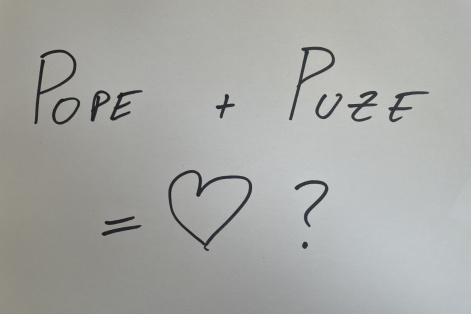 POPE + PUZE
= ♡ ?